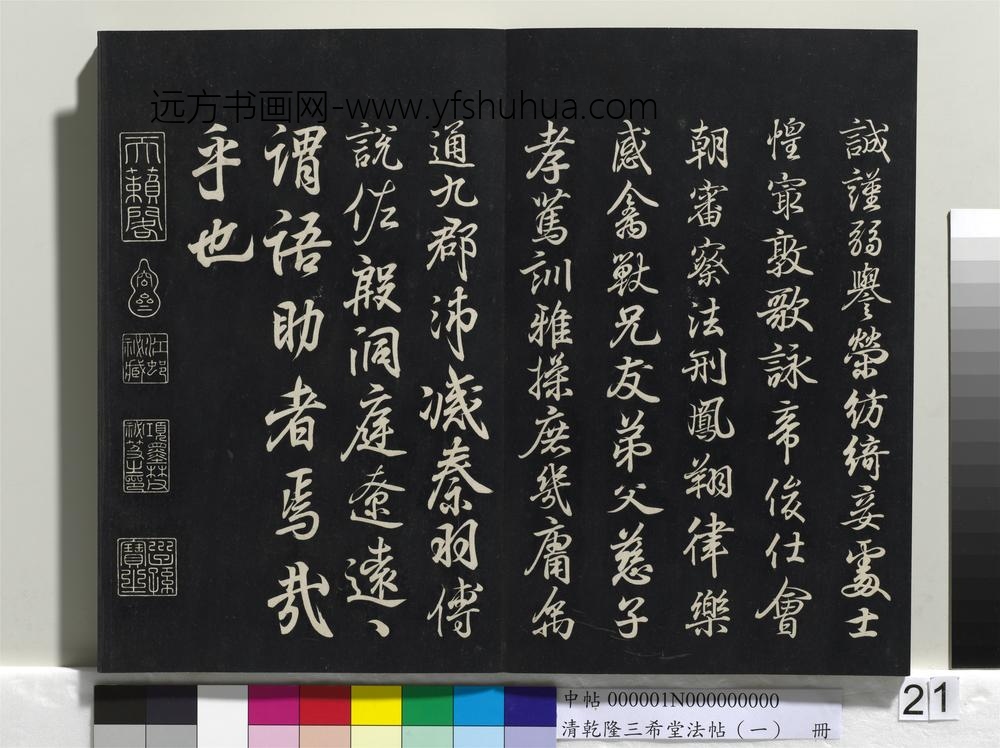 远方书画网-www.yfshuhua.com
誠謹弱譽榮紡綺妾處士
惶寂敦歌詠帝俊仕會
朝審察法刑鳳翔律樂
感禽獸兄友弟父慈子
孝篤訓雅操庶幾庸為
通九郡沛滅秦羽傅
說佐殷洞庭遼遠
謂語助者焉哉
乎也
天籟閣
項墨林秘笈之印
子孫寶坐
中帖 000001N000000000
清乾隆三希堂法帖（一） 冊
21